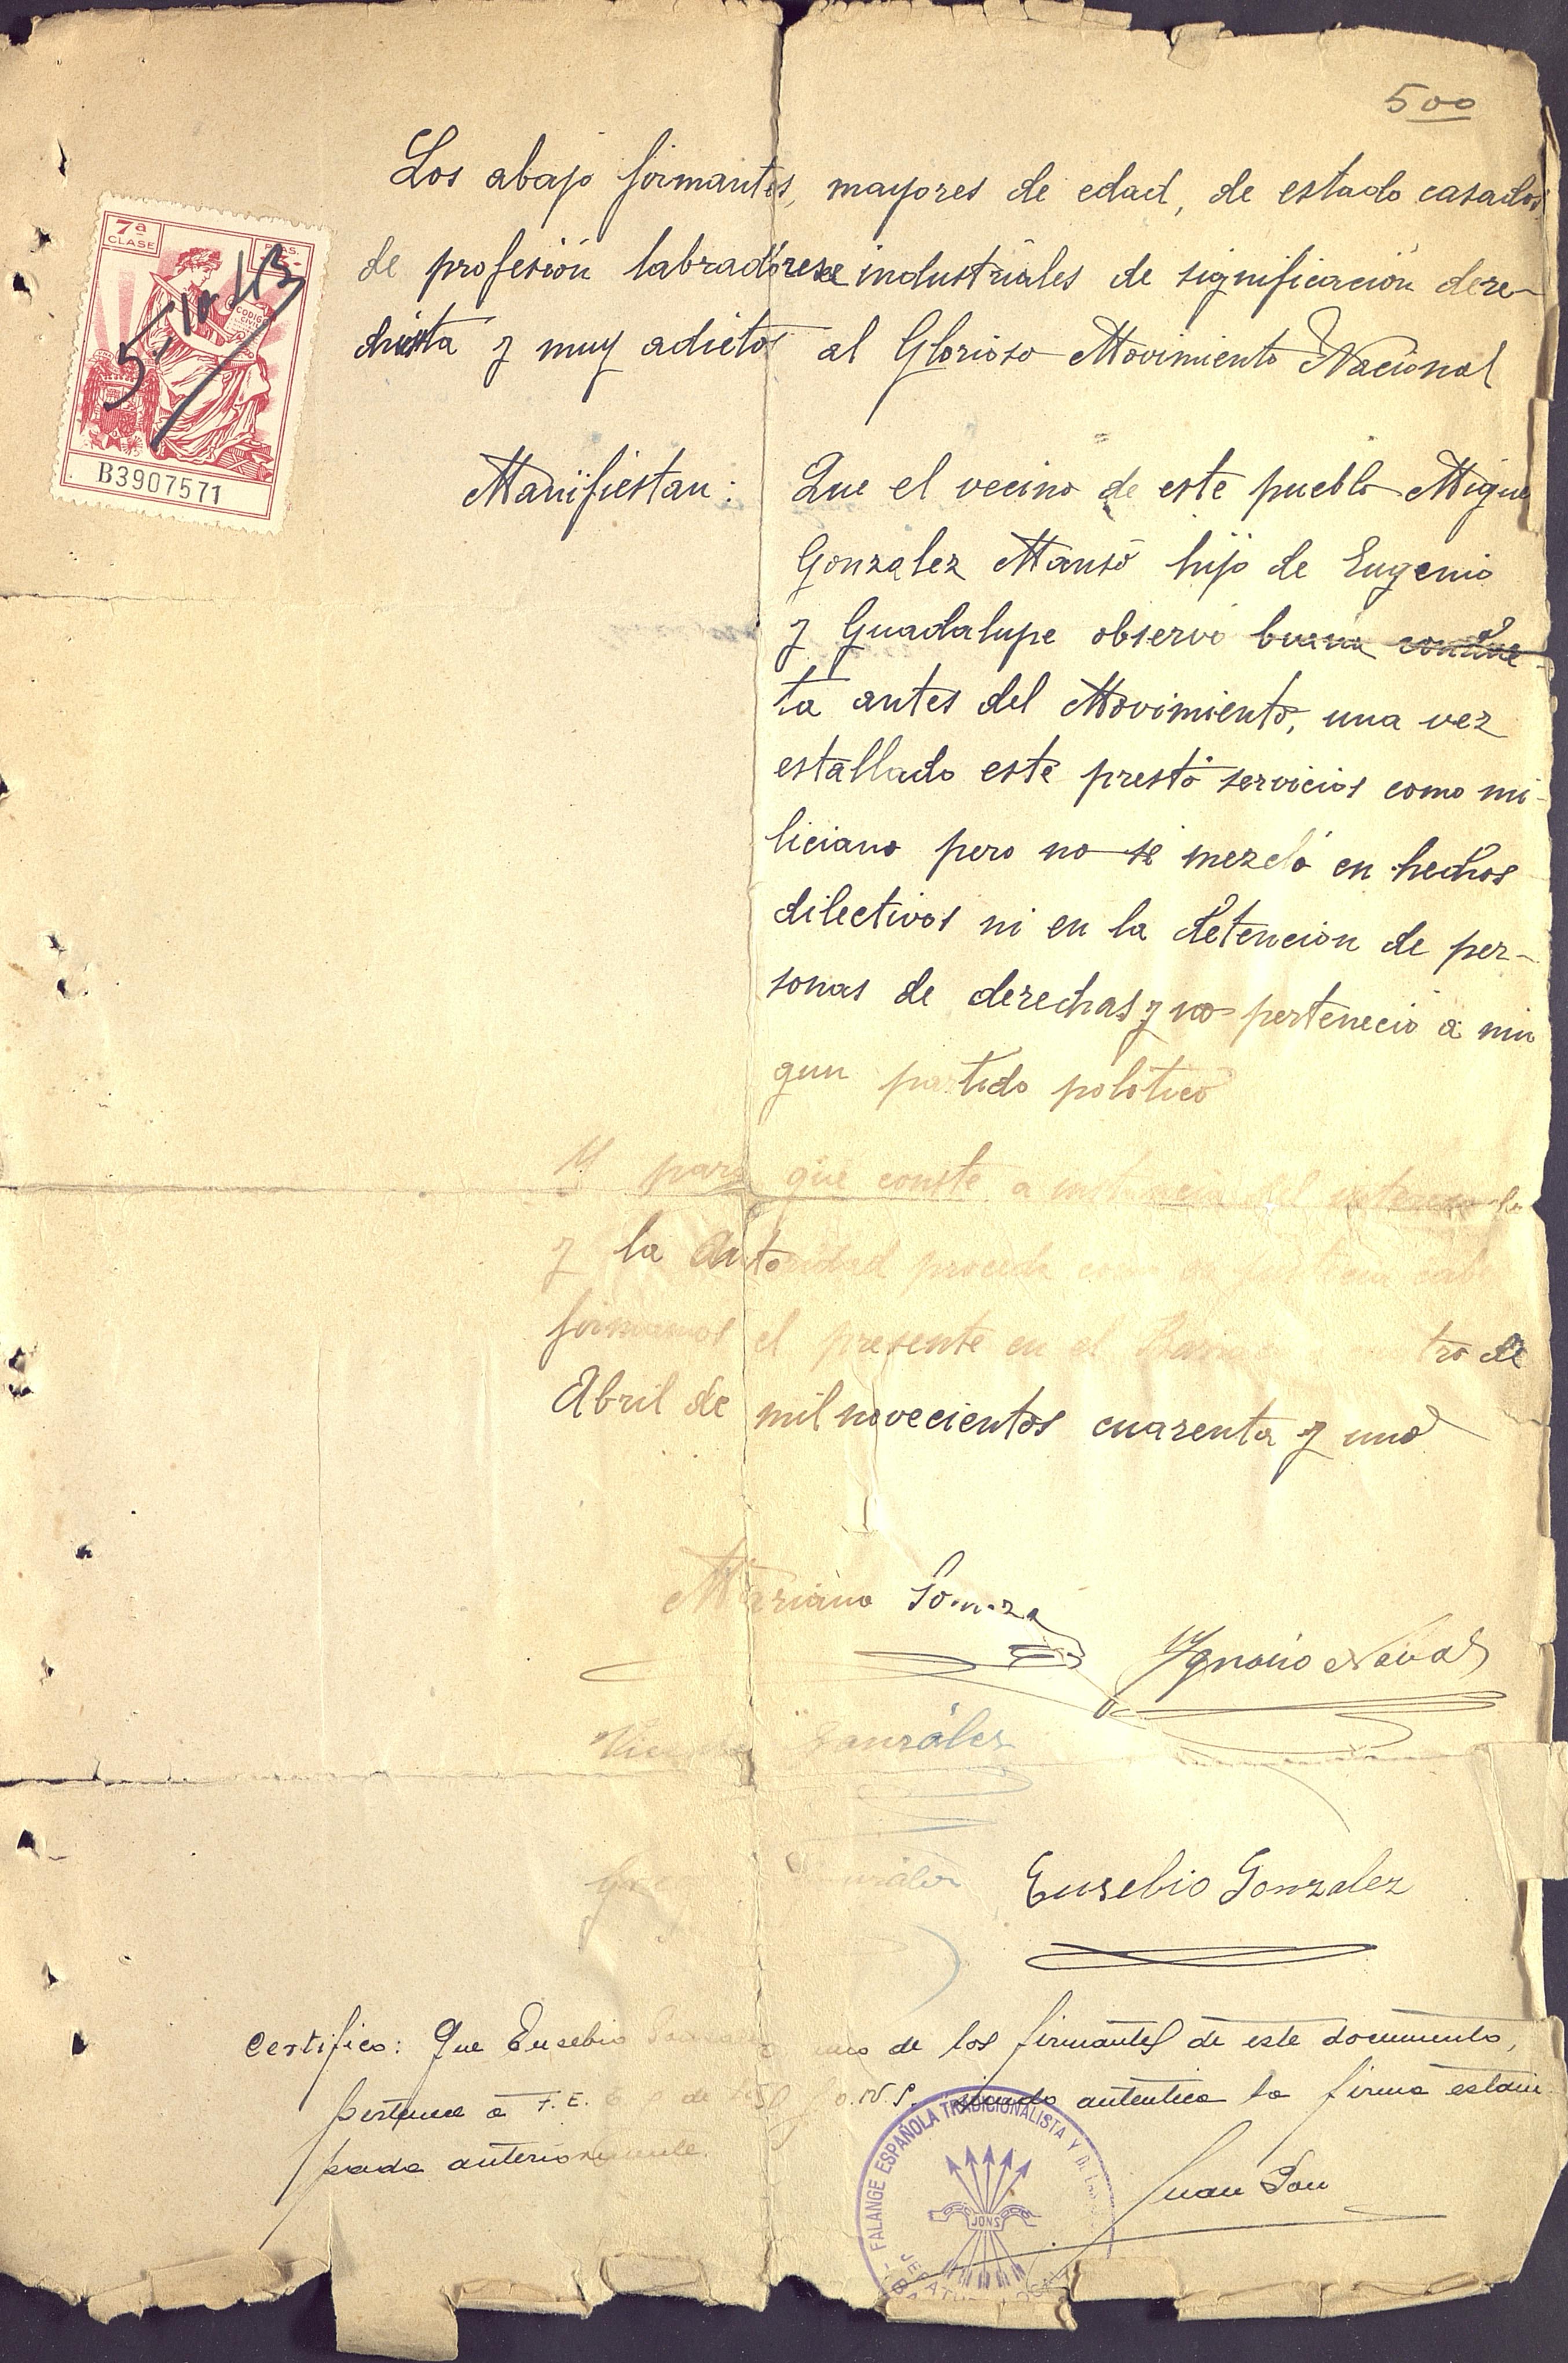 500
Los abajo firmantes, mayores de edad, de estado casados
de profesión labradores e industriales de significación dere-
chista y muy adictos al Glorioso Movimiento Nacional
7ª CLASE
PTAS.
CODIGO CIVIL
B3907571
Manifiestan: Que el vecino de este pueblo Migue
Gonzalez Mansó hijo de Eugenio
y Guadalupe observó buena conduc-
ta antes del Movimiento, una vez
estallado esté prestó servicios como mi-
liciano pero no se mezcló en hechos
dilectivos ni en la detencion de per-
sonas de derechas y no perteneció a nin
gun partido politico
Y para que conste a instancia del interesado
y la Autoridad proceda como en justicia cabe
firmamos el presente en el tro de
Abril de mil novecientos cuarenta y uno
Mariano
Ygnacio Naval
Vicente González
Eusebio Gonzalez
Certifico: Que Eusebio uno de los firmantes de este documento,
pertenece a F.E.T. y de las J.O.N.S. siendo autentica la firma estam
pada anteriormente.
FALANGE ESPAÑOLA TRADICIONALISTA Y D
JONS
JEFATU
Juan